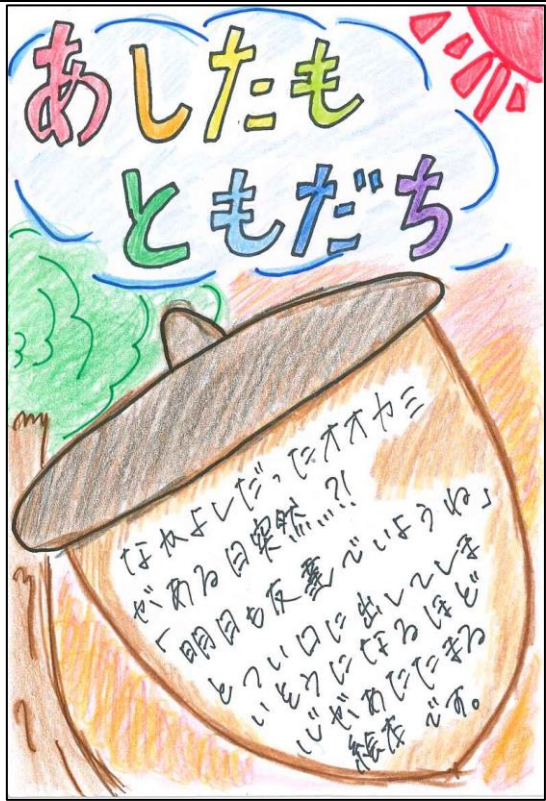 あしたも
ともだち
なかよしだったオオカミ
がある日突然…?!
「明日も友達でいようね」
とつい口に出してしま
いそうになるほど
心があたたまる
絵本です。